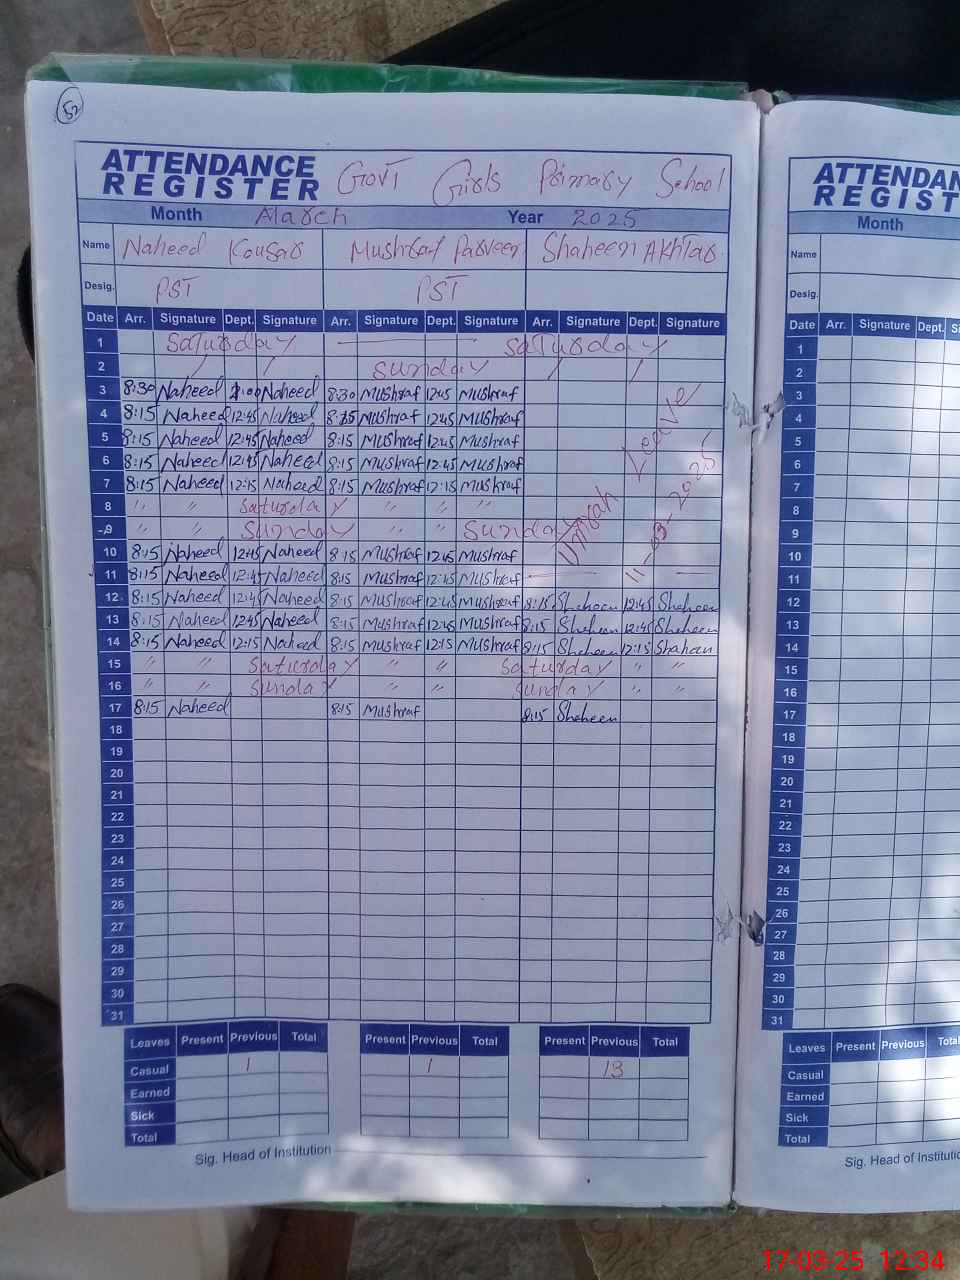 52
ATTENDANCE REGISTER Govt Girls Primary School
Month March Year 2025
Name Naheed Kousar Mushraf Parveen Shaheen Akhtar
Desig. PST PST
Date Arr. Signature Dept. Signature Arr. Signature Dept. Signature Arr. Signature Dept. Signature
1 Saturday Saturday
2 Sunday
3 8:30 Naheed Naheed 8:30 Mushraf 12:45 Mushraf
4 8:15 Naheed 12:45 Naheed 8:15 Mushraf 12:45 Mushraf
5 8:15 Naheed 12:45 Naheed 8:15 Mushraf 12:45 Mushraf
6 8:15 Naheed 12:45 Naheed 8:15 Mushraf 12:45 Mushraf
7 8:15 Naheed 12:15 Naheed 8:15 Mushraf 12:15 Mushraf
Ummrah Leave
11-03-2025
8 " " Saturday " "
9 " " Sunday " " Sunday
10 8:15 Naheed 12:45 Naheed 8:15 Mushraf 12:45 Mushraf
11 8:15 Naheed 12:45 Naheed 8:15 Mushraf 12:45 Mushraf
12 8:15 Naheed 12:45 Naheed 8:15 Mushraf 12:45 Mushraf 8:15 Shaheen 12:45 Shaheen
13 8:15 Naheed 12:45 Naheed 8:15 Mushraf 12:45 Mushraf 8:15 Shaheen 12:45 Shaheen
14 8:15 Naheed 12:15 Naheed 8:15 Mushraf 12:15 Mushraf 8:15 Shaheen 12:15 Shahean
15 " " Saturday " " Saturday " "
16 " " Sunday " " Sunday " "
17 8:15 Naheed 8:15 Mushraf 8:15 Shaheen
18
19
20
21
22
23
24
25
26
27
28
29
30
31
Leaves Present Previous Total Present Previous Total Present Previous Total
Casual 1 1 13
Earned
Sick
Total
Sig. Head of Institution
ATTENDAN
REGIST
Month
Name
Desig.
Date Arr. Signature Dept. S
1
2
3
4
5
6
7
8
9
10
11
12
13
14
15
16
17
18
19
20
21
22
23
24
25
26
27
28
29
30
31
Leaves Present Previous Total
Casual
Earned
Sick
Total
Sig. Head of Institutio
17-03-25 12:34